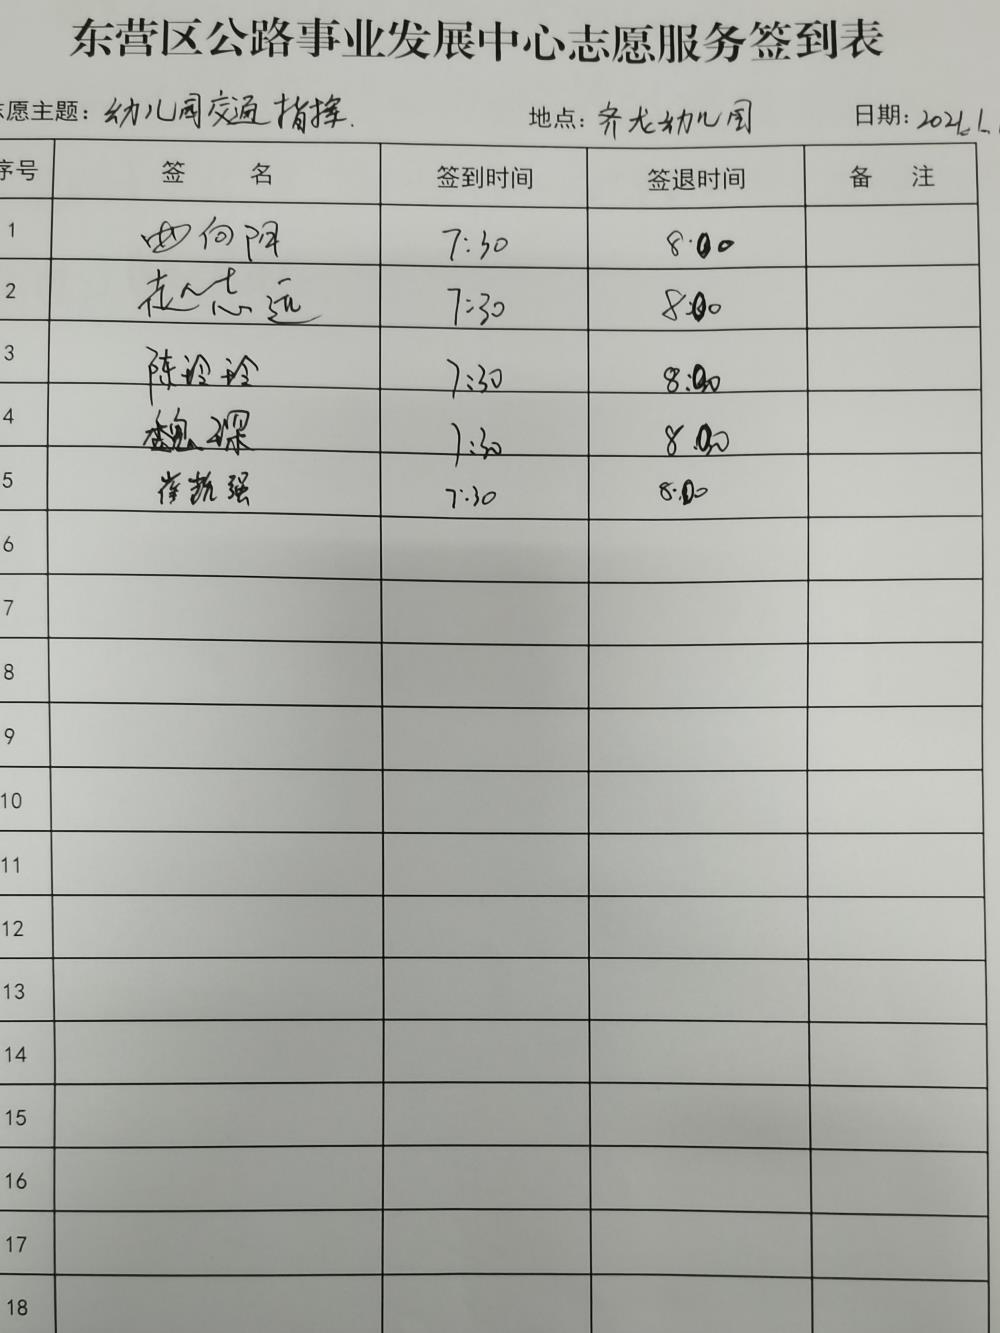 东营区公路事业发展中心志愿服务签到表
志愿主题：幼儿园交通指挥. 地点：齐龙幼儿园 日期：
序号 签 名 签到时间 签退时间 备 注
1 曲向阳 7:30 8:00
2 赵志远 7:30 8:00
3 陈玲玲 7:30 8:00
4 魏琛 7:30 8:00
5 崔凯强 7:30 8:00
6
7
8
9
10
11
12
13
14
15
16
17
18